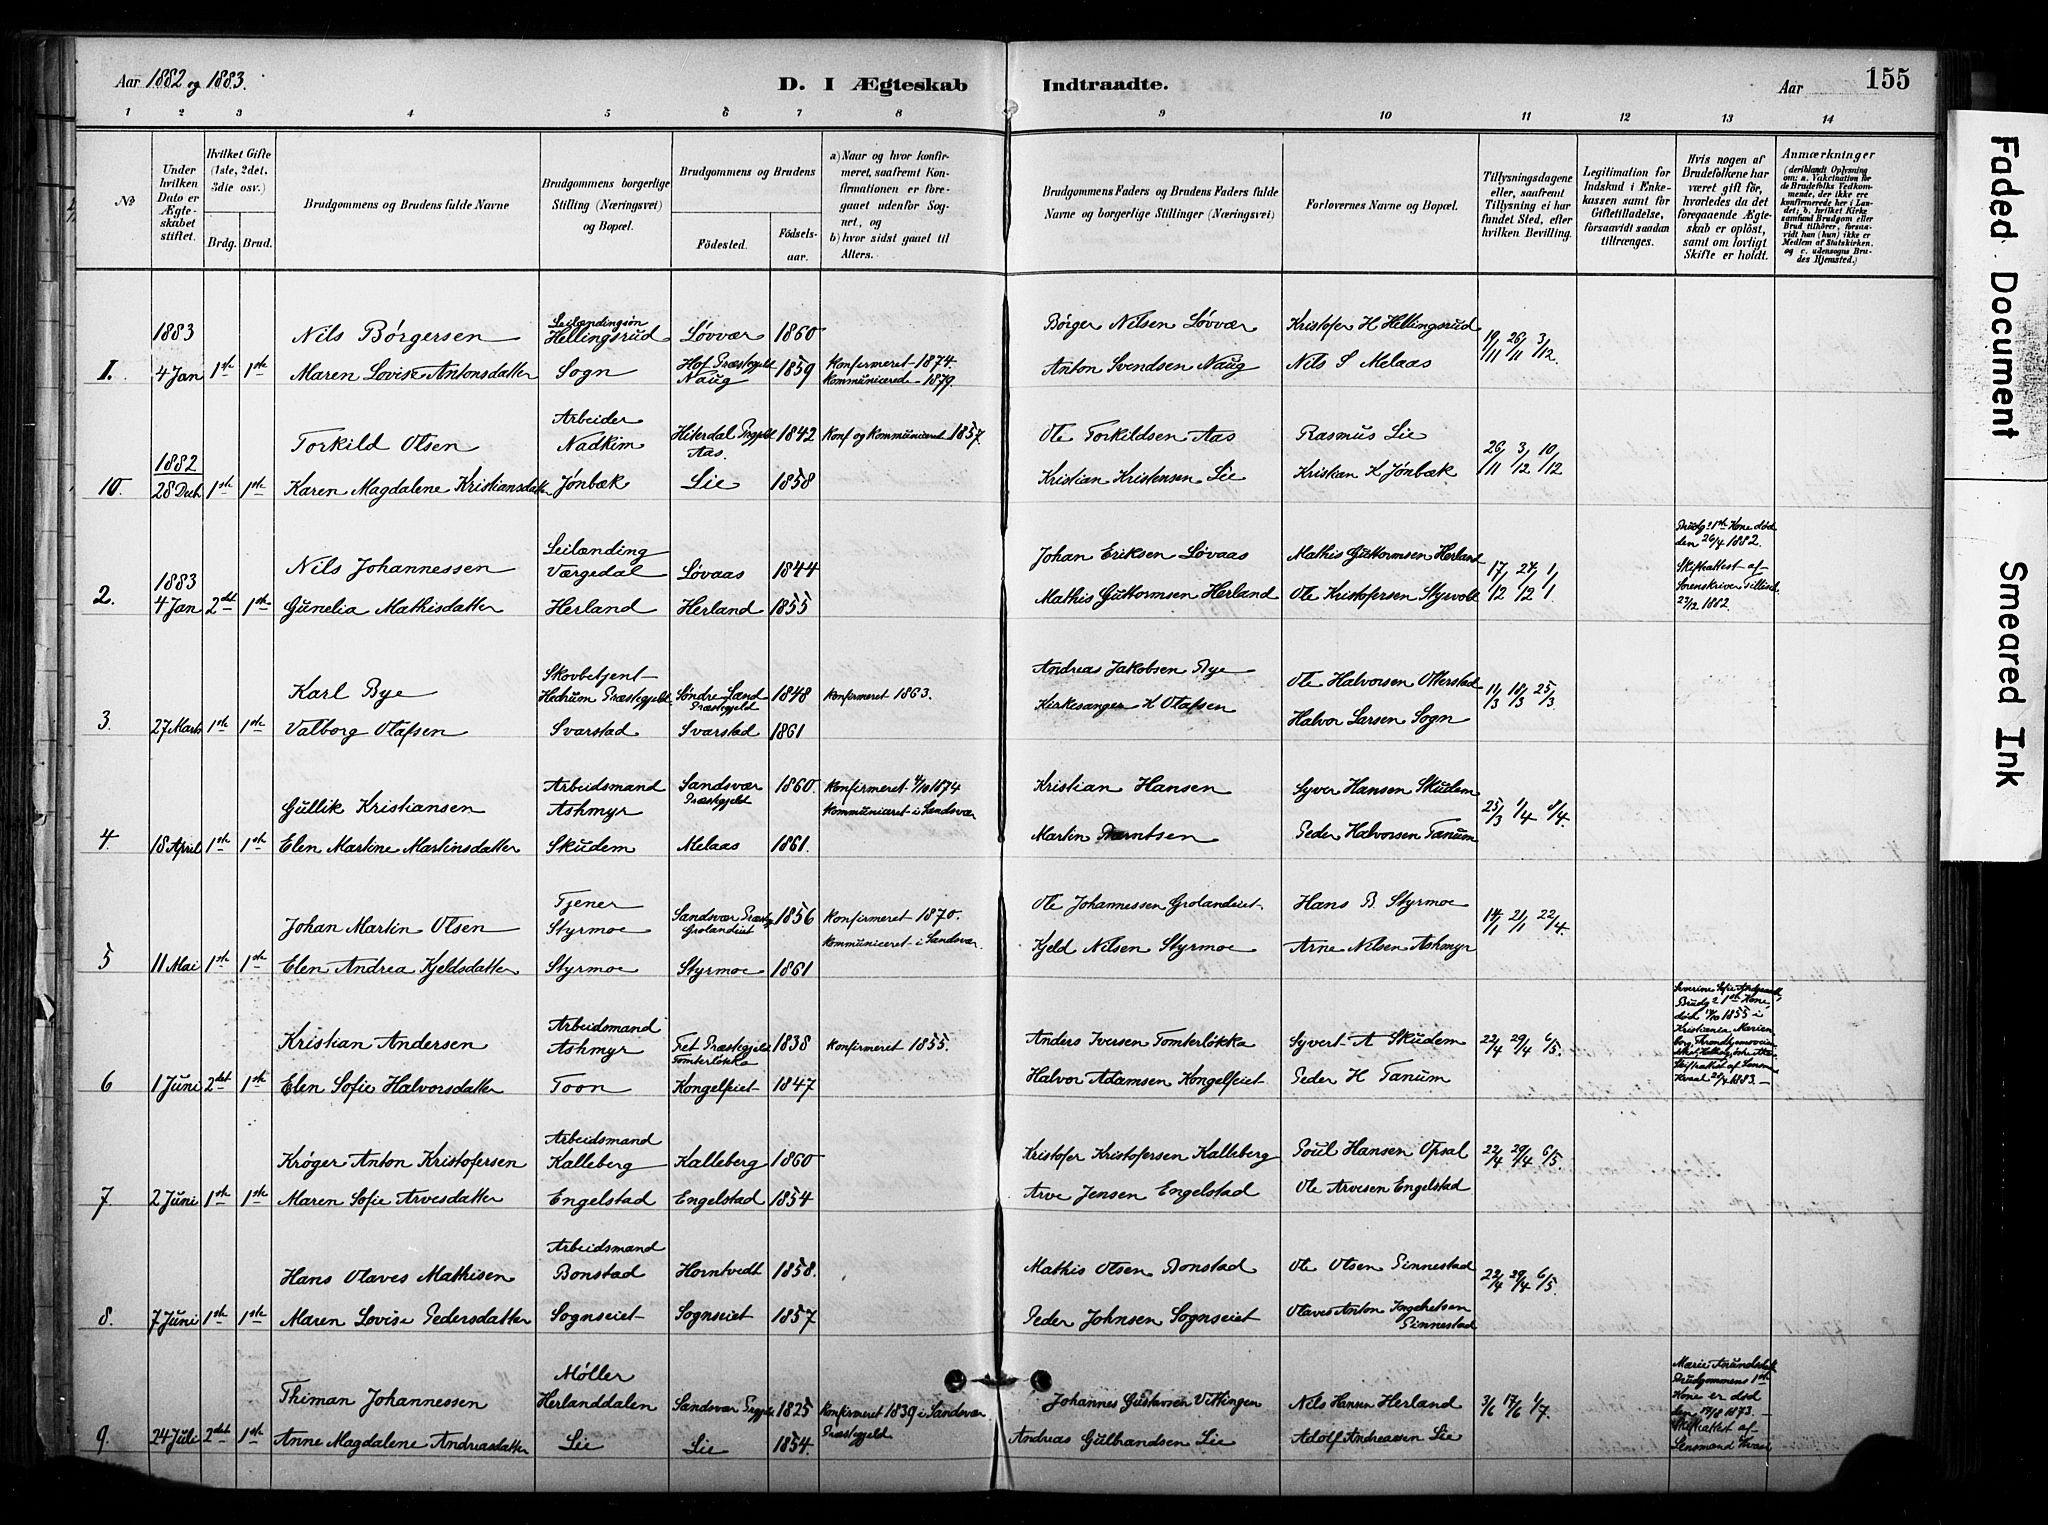 Aar 1882 og 1883.
D. I Ægteskab Indtraadte.
Aar
155
1 2 3 4 5 6 7 8 9 10 11 12 13 14
№
Under hvilken Dato er Ægteskabet stiftet.
Hvilket Gifte (1ste, 2det, 3die osv.)
Brdg. Brud.
Brudgommens og Brudens fulde Navne
Brudgommens borgerlige Stilling (Næringsvei) og Bopæl.
Brudgommens og Brudens
Fødested.
Fødselsaar.
a) Naar og hvor konfirmeret, saafremt Konfirmationen er foregaaet udenfor Sognet, og
b) hvor sidst gaaet til Alters.
Brudgommens Faders og Brudens Faders fulde Navne og borgerlige Stillinger (Næringsvei)
Forlovernes Navne og Bopæl.
Tillysningsdagene eller, saafremt Tillysning ei har fundet Sted, efter hvilken Bevilling.
Legitimation for Indskud i Enkekassen samt for Giftetilladelse, forsaavidt saadan tiltrænges.
Hvis nogen af Brudefolkene har været gift før, hvorledes da det foregaaende Ægteskab er opløst, samt om lovligt Skifte er holdt.
Anmærkninger (deriblandt Oplysning om: a. Vaccination for de Brudefolks Vedkommende, der ikke ere konfirmerede her i Landet; b. hvilket Kirkesamfund Brudgom eller Brud tilhører, forsaavidt han (hun) ikke er Medlem af Statskirken, og c. udensogns Brudes Hjemsted.)
1883 Nils Børgersen Leilændingsøn Hellingsrud Løvvær 1860 Børger Nilsen Løvvær Kristofer H Hellingsrud 19/11 26/11 3/12
1. 4 Jan 1ste 1ste Maren Lovise Antonsdatter Sogn Hof Præstegjeld Naug 1859 Konfirmeret 1874. Kommunicerede 1879 Anton Svendsen Naug Nils S Melaas
Torkild Olsen Arbeider Nadkim Hiterdal Prgjeld Aas. 1842 Konf og Kommuniceret 1857. Ole Torkildsen Aas Rasmus Lie 26/11 3/12 10/12
1882
10. 28 Decb 1ste 1ste Karen Magdalene Kristiansdatter Jønbæk Lie 1858 Kristian Kristensen Lie Kristian K Jønbæk
Nils Johannessen Leilænding Værgedal Løvaas 1844 Johan Eriksen Løvaas Mathis Guttormsen Herland 17/12 27/12 1/1 Brudgs 1ste Kone død den 26/4 1882.
1883
2. 4 Jan 2det 1ste Gunelia Mathisdatter Herland Herland 1855 Mathis Guttormsen Herland Ole Kristofersen Styrvold Skifteattest af Sorenskriver Tillisch 27/12 1882.
Karl Bye Skovbetjent Hedrum Præstegjeld Søndre Land Præstegjeld 1848 Konfirmeret 1863. Andreas Jakobsen Bye Ole Halvorsen Otterstad 11/3 18/3 25/3.
3. 27 Marts 1ste 1ste Valborg Olafsen Svarstad Svarstad 1861 Kirkesanger K Olafsen Halvor Larsen Sogn
Gullik Kristiansen Arbeidsmand Ashmyr Sandsvær Præstegjeld 1860. Konfirmeret 4/10 1874 Kommuniceret i Sandsvær Kristian Hansen Syver Hansen Skudem 25/3 1/4 8/4.
4. 18 April 1ste 1ste Elen Martine Martinsdatter Skudem Melaas 1861. Martin Berntsen Peder Halvorsen Tanum
Johan Martin Olsen Tjener Styrmoe Sandsvær Præstegj Grolandeiet 1856 Konfirmeret 1870. Kommuniceret i Sandsvær. Ole Johannessen Grolandeiet Hans B. Styrmoe 14/1 21/1 22/4.
5 11 Mai 1ste 1ste Elen Andrea Kjeldsdatter Styrmoe Styrmoe 1861 Kjeld Nilsen Styrmoe Arne Nilsen Ashmyr
Kristian Andersen Arbeidsmand Ashmyr Fet Præstegjeld Tomterløkka 1838 Konfirmeret 1855. Anders Iversen Tomterløkka Syvert A Skudem 22/4 29/4 6/5. Brudgs 1ste Kone, 1855 i Kristiania
6 1 Juni 2det 1ste Elen Sofie Halvorsdatter Toon Kongelfeiet 1847 Halvor Adamsen Kongelfeiet Peder H Tanum Skifteattest af 1883.
Krøger Anton Kristofersen Arbeidsmand Kalleberg Kalleberg 1860 Kristofer Kristofersen Kalleberg Poul Hansen Opsal 22/4 29/4 6/5.
7. 2 Juni 1ste 1ste Maren Sofie Arvesdatter Engelstad Engelstad 1854 Arve Jensen Engelstad Ole Arvesen Engelstad
Hans Olaves Mathisen Arbeidsmand Bonstad Horntvedt 1858. Mathis Olsen Bonstad Ole Olsen Sinnestad 22/4 29/4 6/5.
8. 7 Juni 1ste 1ste Maren Lovise Pedersdatter Sognseiet Sognseiet 1857 Peder Johnsen Sognseiet Olaves Anton Ingebretsen Sinnestad
Thiman Johannessen Møller Herlanddalen Sandsvær Prgjeld 1825 Konfirmeret 1839 i Sandsvær Præstegjeld Johannes Gustavsen Vittingen Nils Hansen Herland 3/6 17/6 1/7. Marie Anundsdatt Brudgommens 1ste Kone er død den 17/8 1873.
9. 24 Juli 2det 1ste Anne Magdalene Andreasdatter Lie Lie 1854. Andreas Gulbrandsen Lie Adolf Andreasen Lie Skifteattest af Lensmand Kvast
Faded Document
Smeared Ink